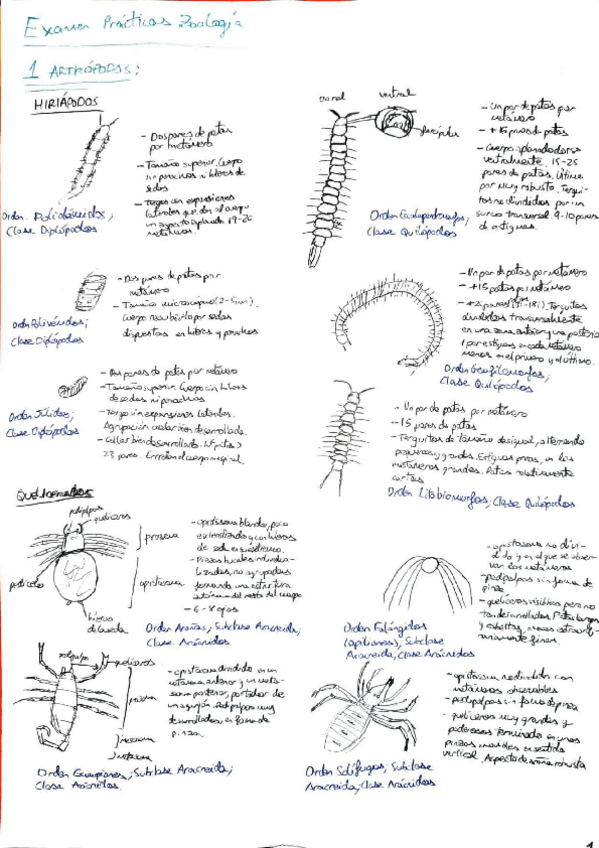 Examen Prácticas Zoología
1 ARTRÓPODOS:
MIRIÁPODOS
- Dos pares de patas
por metámero
- Tamaño superior. Cuerpo
sin penachos ni hileras de
sedas
- Tergos con expansiones
laterales que dan al cuerpo
un aspecto aplanado. 19-20
metámeros.
Orden
Clase Diplópodos
- Dos pares de patas por
metámero
- Tamaño microscópico (2-5mm).
Cuerpo recubierto por sedas
dispuestas en hileras y penachos
Orden Polixénidos;
Clase Diplópodos
- Dos pares de patas por metámero
- Tamaño superior. Cuerpo sin hileras
de sedas ni penachos
- Tergo sin expansiones laterales.
Agrupación ocular bien desarrollada.
- Collar bien desarrollado. Nº patas >
23 pares. Enrollan el cuerpo en espiral
Orden Júlidos;
Clase Diplópodos
dorsal
ventral
forcípulas
- Un par de patas por
metámero
- +15 pares de patas
- Cuerpo aplanado dorso
ventralmente. 15-25
pares de patas. Último
par muy robusto. Tergui-
tos no divididos por un
surco transversal. 9-10 pares
de estigmas.
Orden
Clase Quilópodos
- Un par de patas por metámero
- +15 patas por metámero
pares
divididos transversalmente
en una zona anterior y una posterior
1 par estigmas en cada metámero
menos en el primero y el último.
Orden Geofilomorfos;
Clase Quilópodos
- Un par de patas por metámero
- 15 pares de patas
- Terguitos de tamaño desigual, alternando
pequeños y grandes. Estigmas pares, en los
metámeros grandes. Patas relativamente
cortas
Orden Litobiomorfos; Clase Quilópodos
QUELICERADOS
pedipalpos
quelíceros
prosoma
opistosoma
pedicelo
hileras
de la seda
- opistosoma blando, poco
esclerotizado y con hileras
de seda en su extremo.
- Piezas bucales individua-
lizadas, no agrupadas
formando una estructura
autónoma del resto del cuerpo
- 6-8 ojos
Orden Arañas; Subclase Aracneida;
Clase Arácnidos
- opistosoma no divi-
dido y en el que se obser-
van los metámeros
- pedipalpos sin forma de
pinza
- quelíceros visibles pero no
tan desarrollados. Patas largas
y esbeltas, a veces extraordi-
nariamente finas.
Orden Falángidos
(opiliones); Subclase
Aracneida; Clase Arácnidos
pedipalpos
quelíceros
prosoma
mesosoma
metasoma
- opistosoma dividido en un
mesosoma anterior y un meta-
soma posterior, portador de
un aguijón. Pedipalpos muy
desarrollados en forma de
pinza.
Orden Escorpiones; Subclase Aracneida;
Clase Arácnidos.
- opistosoma redondeado con
metámeros observables
- pedipalpos sin forma de pinza
- quelíceros muy grandes y
poderosos terminado en unas
pinzas movidas en sentido
vertical. Aspecto de araña robusta
Orden Solífugos; Subclase
Aracneida; Clase Arácnidos
1